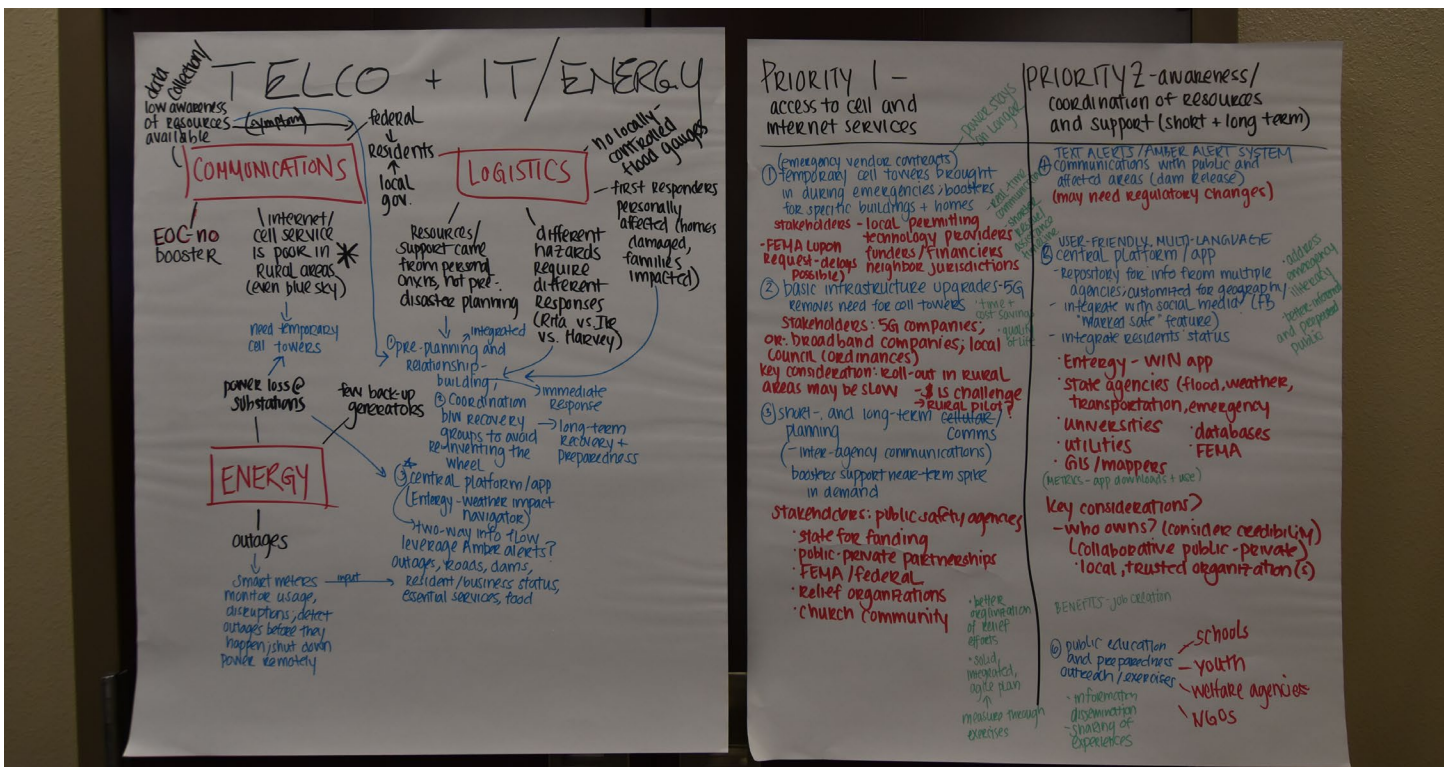 data
collection/
TELCO + IT/ENERGY
low awareness
of resources
available
(symptom)
federal
Residents
local
gov.
no locally
controlled
flood gauges
COMMUNICATIONS
LOGISTICS
EOC-no
booster
internet/
cell service
is poor in
rural areas
(even blue sky)
Resources/
support came
from personal
not pre-
disaster planning
different
hazards
require
different
Responses
(Rita vs. Ike
vs. Harvey)
first responders
personally
affected (homes
damaged,
families
impacted)
need temporary
cell towers
power loss@
substations
few back-up
generators
integrated
① pre-planning and
relationship-
building;
② coordination
b/w recovery
groups to avoid
re-inventing the
wheel
immediate
response
long-term
recovery +
preparedness
ENERGY
③ central platform/app
(Entergy-weather impact
navigator)
two-way info flow
leverage Amber alerts?
outages, roads, dams,
resident/business status,
essential services, food
outages
smart meters
monitor usage,
disruptions, detect
outages before they
happen; shut down
power remotely
input
PRIORITY 1 -
access to cell and
internet services
power stays
on longer
(emergency vendor contracts)
① temporary cell towers brought
in during emergencies; boosters
for specific buildings + homes
real-time
stakeholders - local permitting
technology providers
funders/financiers
neighbor jurisdictions
-FEMA upon
request-delays
possible)
② basic infrastructure upgrades-5G
removes need for cell towers
time +
cost saving
quality
of life
stakeholders: 5G companies;
or broadband companies; local
council (ordinances)
key consideration: roll-out in rural
areas may be slow - $ is challenge
→ rural pilot?
③ short-, and long-term cellular/
planning comms
(- inter-agency communications)
boosters support near-term spike
in demand
stakeholders: public safety agencies
· state for funding
· public-private partnerships
· FEMA/federal
· relief organizations
· church community
· better
organization
of relief
efforts
· solid,
integrated,
agile plan
measure through
exercises
PRIORITY 2 - awareness/
coordination of resources
and support (short + long term)
TEXT ALERTS/AMBER ALERT SYSTEM
④ communications with public and
affected areas (dam release)
(may need regulatory changes)
USER-FRIENDLY, MULTI-LANGUAGE
central platform/app
- Repository for info from multiple
agencies; customized for geography
- integrate with social media (FB
"marked safe" feature)
- integrate residents status
· address
emergency
literacy
better-informed
and prepared
public
· Entergy - WIN app
· state agencies (flood, weather,
transportation, emergency
· universities
· databases
· utilities
· FEMA
· GIS/mappers
(METRICS - app downloads + use)
key considerations?
- who owns? (consider credibility)
(collaborative public-private)
· local, trusted organization(s)
BENEFITS - job creation
⑥ public education
and preparedness
outreach/exercises
schools
youth
welfare agencies
NGOs
· information
dissemination
- sharing of
experiences